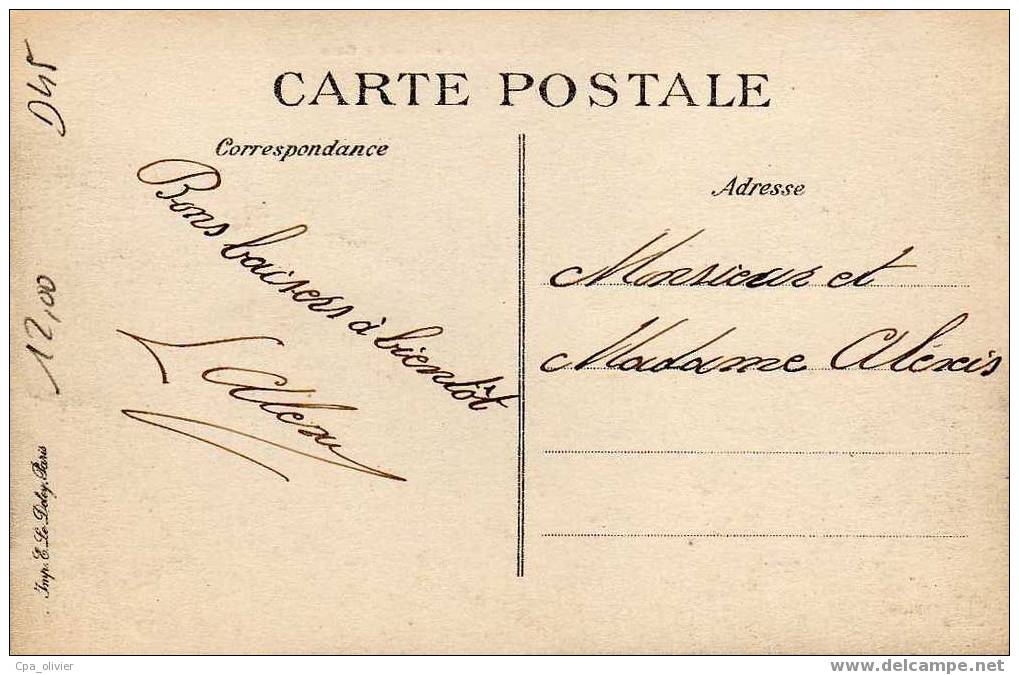 CARTE POSTALE
Correspondance
Bons baisers à bientôt
Adresse
Monsieur et
Madame Alexis
D45
12,00
Imp. E. Le Deley, Paris
Cpa_olivier
www.delcampe.net